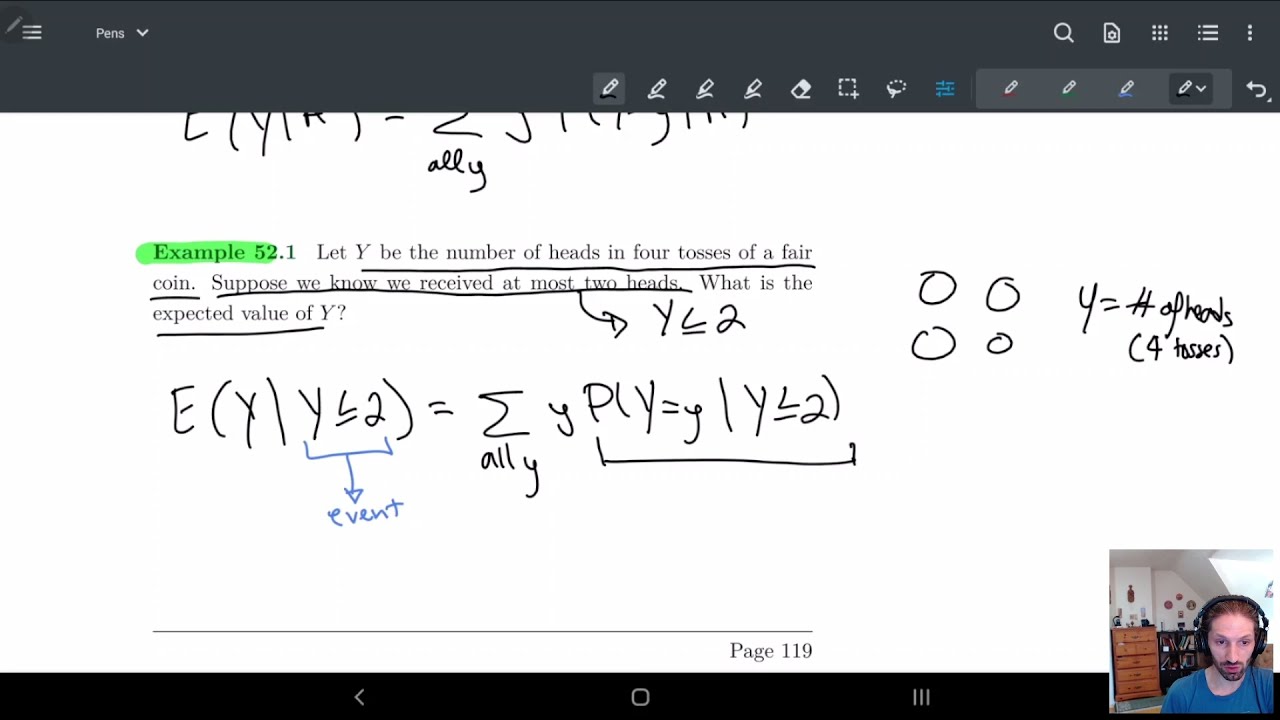 Pens
E(Y|A) = Σ y P(Y=y|A)
all y
Example 52.1 Let Y be the number of heads in four tosses of a fair
coin. Suppose we know we received at most two heads. What is the
expected value of Y?
Y ≤ 2
Y = # of heads
(4 tosses)
E(Y | Y ≤ 2) = Σ y P(Y=y | Y ≤ 2)
all y
event
Page 119